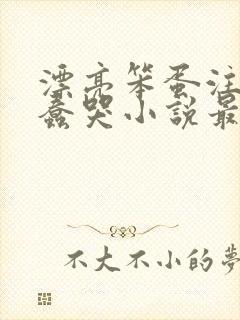 漂亮笨蛋注
蠢哭小說最
不大不小的夢